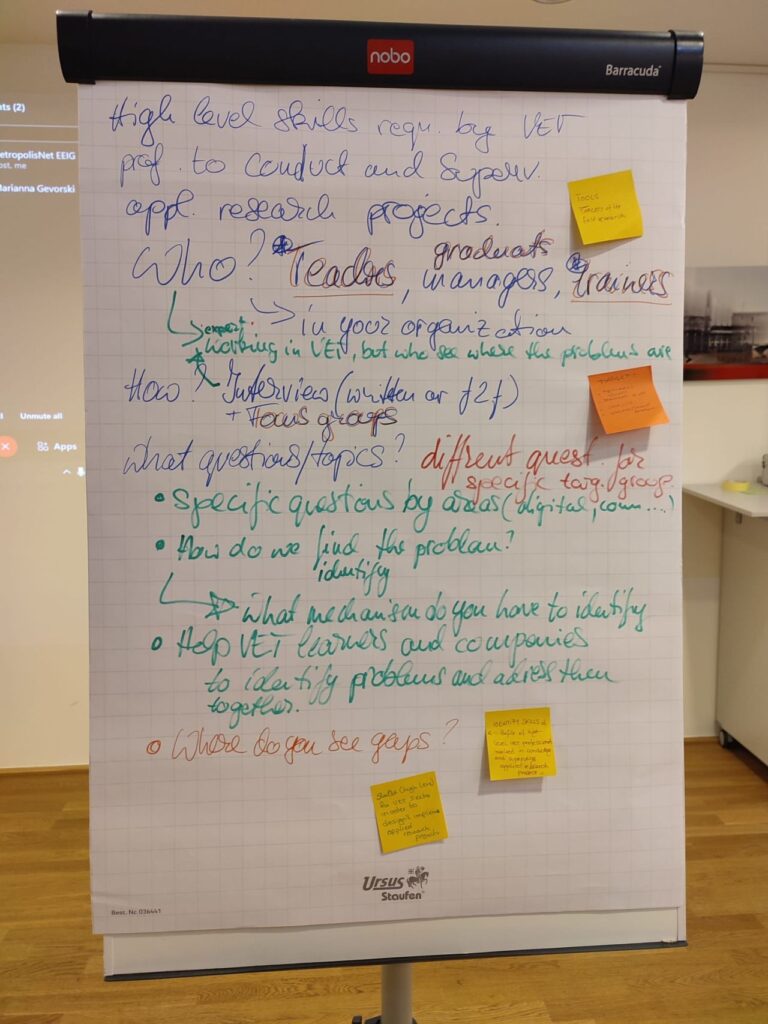 nobo
Barracuda
nts (2)
etropolisNet EEIG
ost, me
Marianna Gevorski
Unmute all
Apps
High level skills requ. by VET
prof. to conduct and superv.
appl. research projects.
TOOLS
graduats
Who? Teachers, managers, trainers
in your organization
expert.
working in VET, but who see where the problems are
How? Interview (written or f2f)
+ Focus groups
What questions/topics? diffrent quest. for
specific targ. group
• Specific questions by areas (digital, comm....)
• How do we find the problem?
identify
What mechanism do you have to identify
• Help VET learners and companies
to identify problems and adress them
together.
• Where do you see gaps?
IDENTIFY SKILLS
level VET professionals
applied research
Skills (high level)
for VET
in order to
applied
research
projects
Ursus
Staufen
Best. Nr. 036441